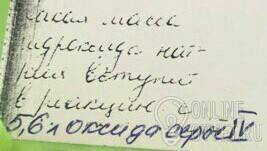 какая масса
гидроксида нат-
рия вступит
в реакцию с
5,6 л оксида серы IV
ONLINE